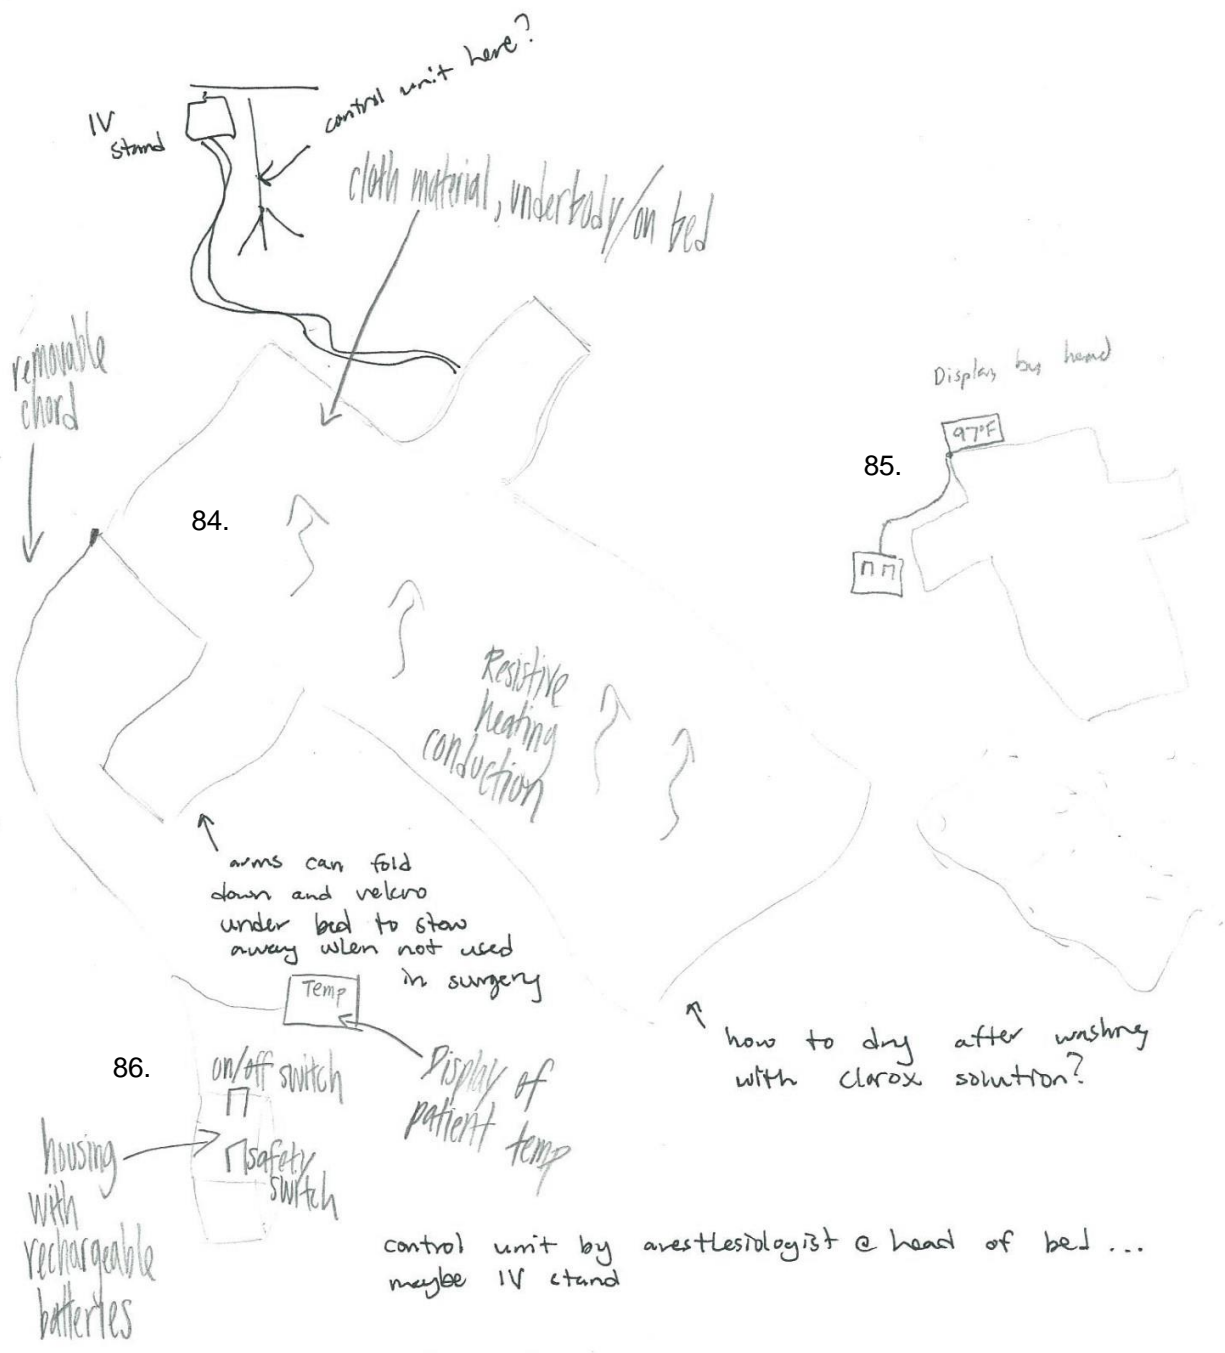 IV
stand
control unit here?
cloth material, underbody/on bed
removable
chord
Display by head
97°F
85.
84.
Resistive
heating
conduction
arms can fold
down and velcro
under bed to stow
away when not used
in surgery
Temp
how to dry after washing
with clorox solution?
86.
on/off switch
Display of
patient temp
safety
switch
housing
with
rechargeable
batteries
control unit by anesthesiologist @ head of bed ...
maybe IV stand